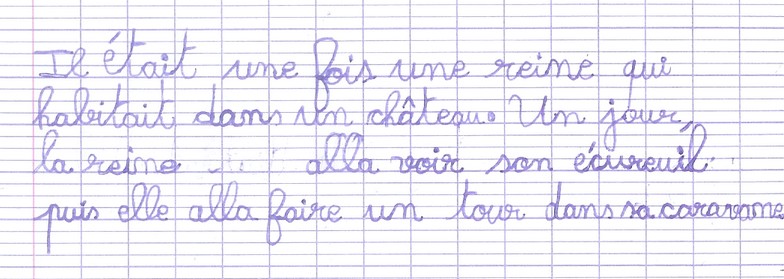 Il était une fois une reine qui
habitait dans un château. Un jour,
la reine alla voir son écureuil
puis elle alla faire un tour dans sa caravane